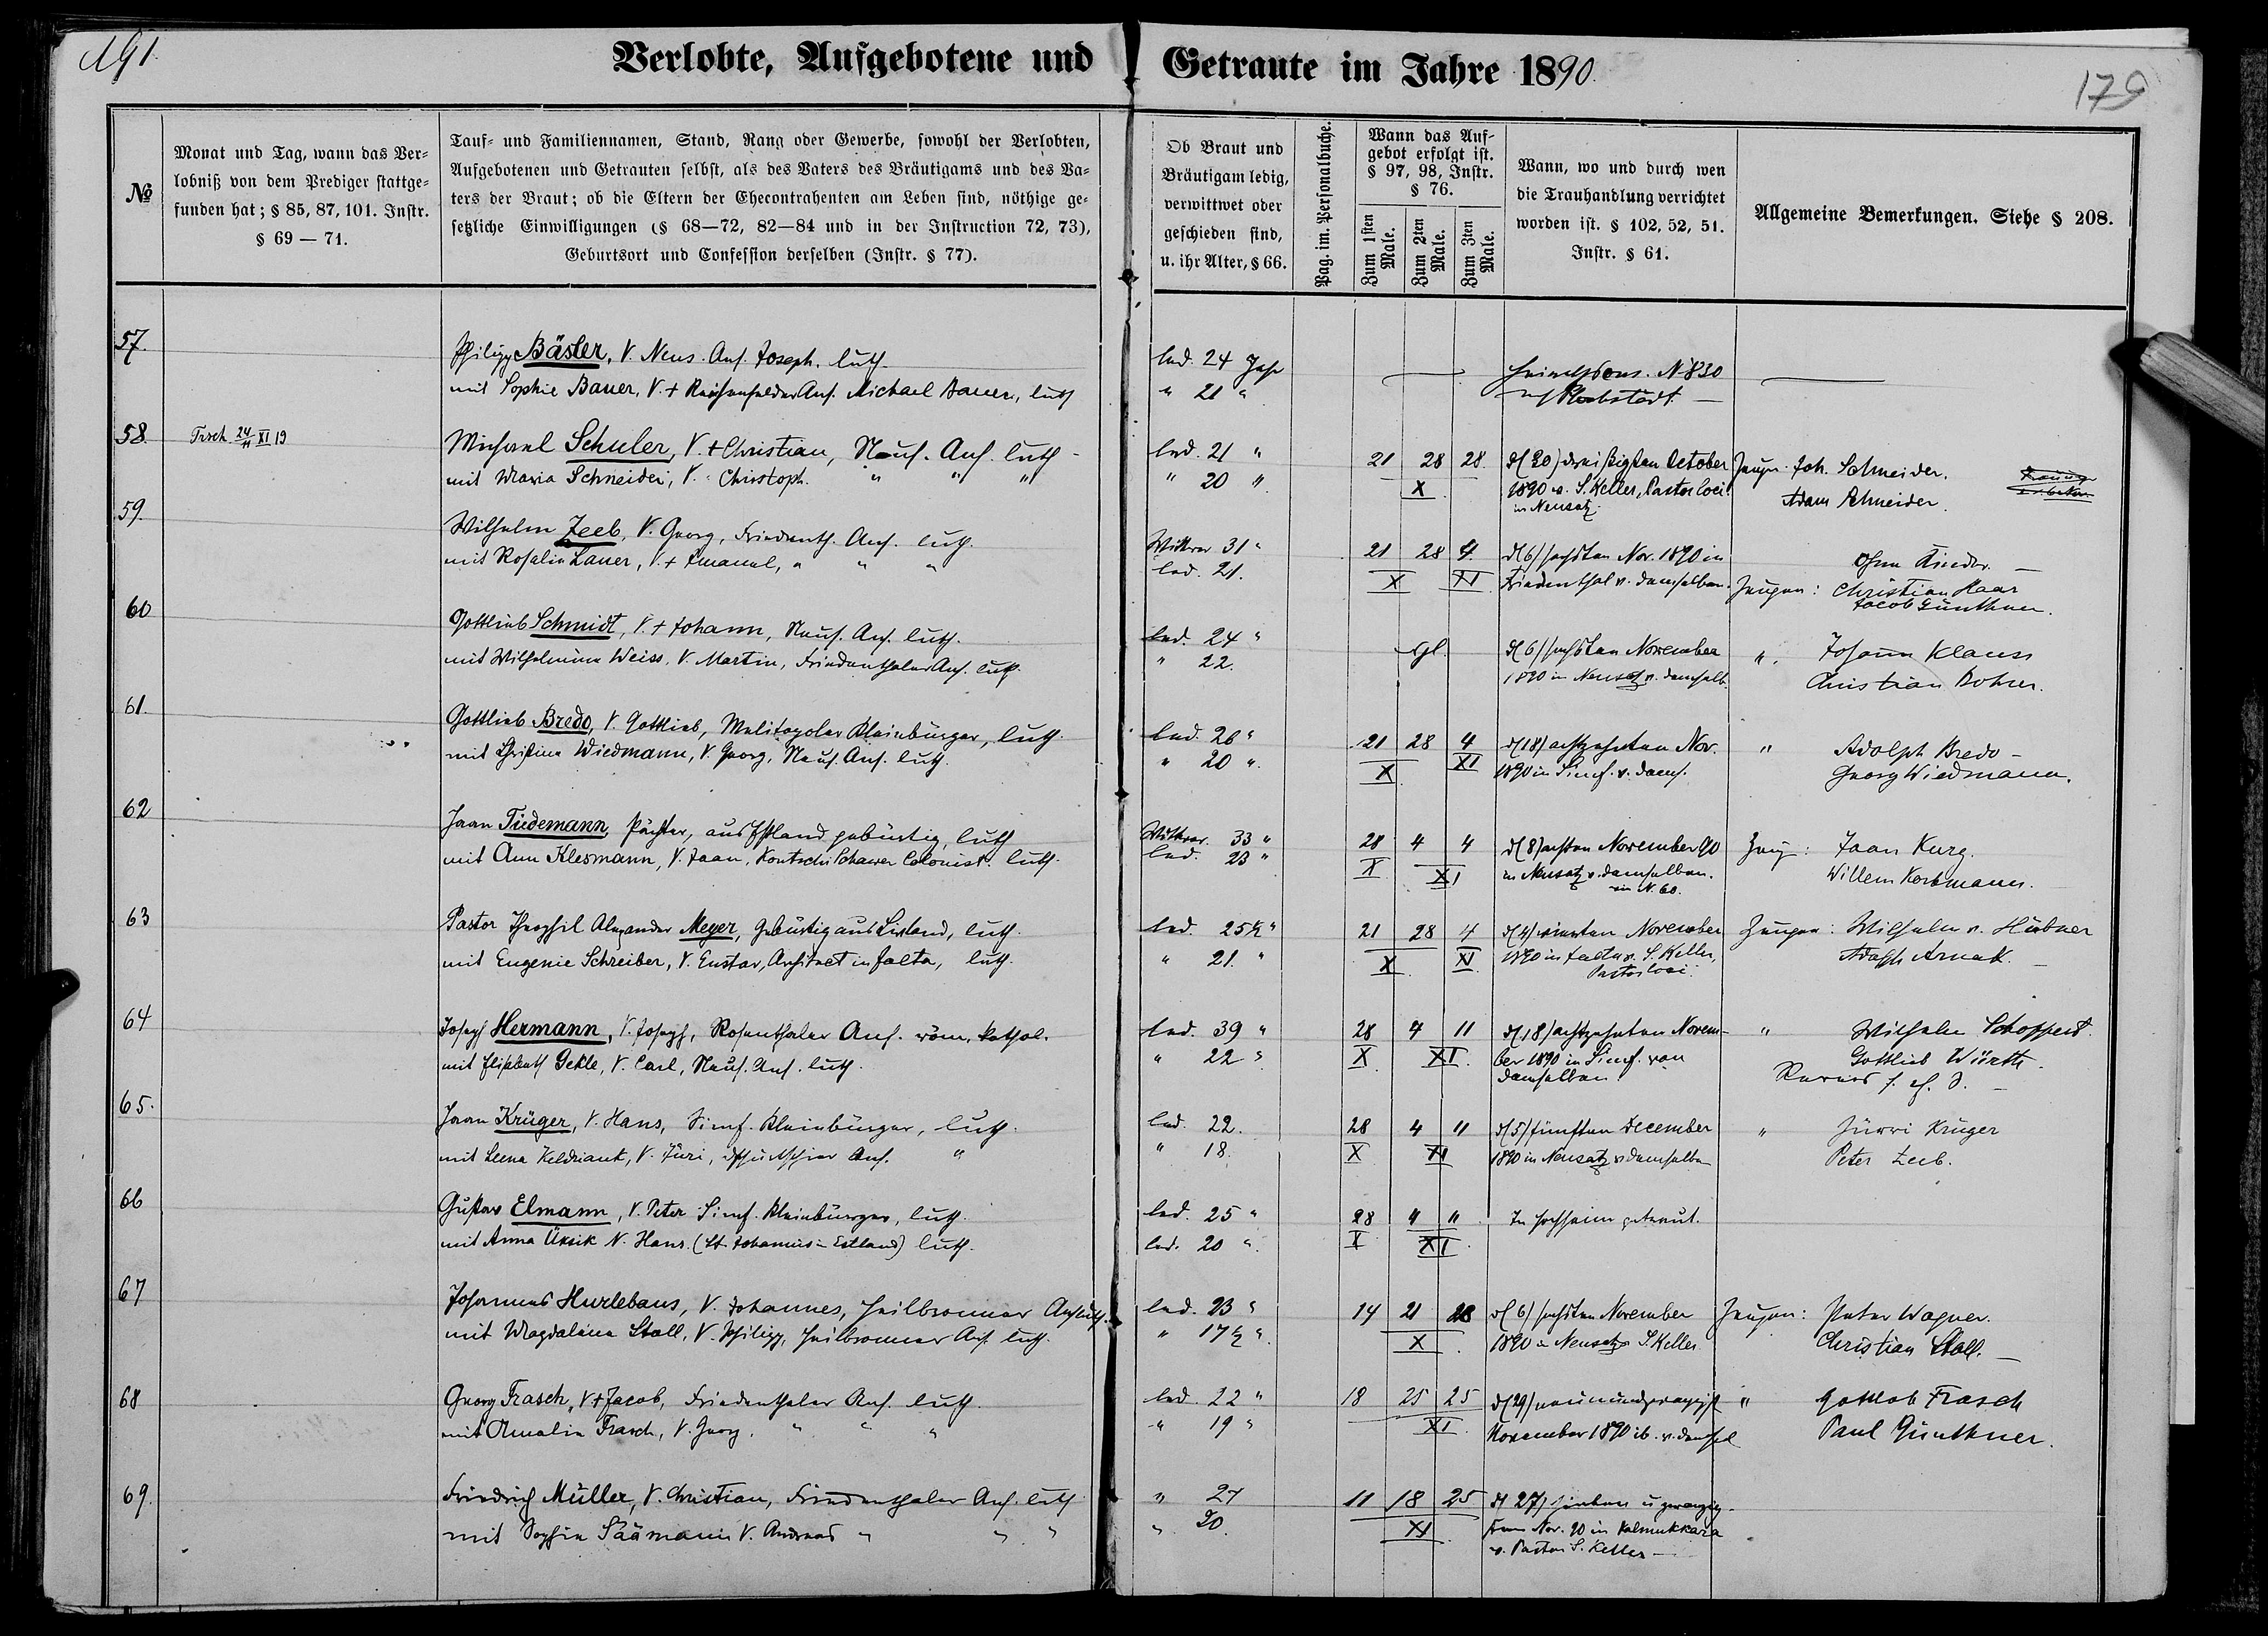 191.
Verlobte, Aufgebotene und Getraute im Jahre 1890.
179
№
Monat und Tag, wann das Ver-
lobniß von dem Prediger stattge-
funden hat; § 85, 87, 101. Instr.
§ 69 — 71.
Tauf- und Familiennamen, Stand, Rang oder Gewerbe, sowohl der Verlobten,
Aufgebotenen und Getrauten selbst, als des Vaters des Bräutigams und des Va-
ters der Braut; ob die Eltern der Ehecontrahenten am Leben sind, nöthige ge-
setzliche Einwilligungen (§ 68—72, 82—84 und in der Instruction 72, 73),
Geburtsort und Confession derselben (Instr. § 77).
Ob Braut und
Bräutigam ledig,
verwittwet oder
geschieden sind,
u. ihr Alter, § 66.
Pag. im. Personalbuche.
Wann das Auf-
gebot erfolgt ist.
§ 97, 98, Instr.
§ 76.
Zum 1sten Male.
Zum 2ten Male.
Zum 3ten Male.
Wann, wo und durch wen
die Trauhandlung verrichtet
worden ist. § 102, 52, 51.
Instr. § 61.
Allgemeine Bemerkungen. Siehe § 208.
57.
Philipp Bäsler, V. Neus. Ans. Joseph. luth.
led. 24 Jahr
N 830
mit Sophie Bauer, V. + Ans. Michael Bauer, luth
" 21 "
58.
Michael Schuler, V. + Christian, Neus. Ans. luth
led. 21 "
21 28 28.
d (30) dreißigsten October
Zeugen: Joh. Schneider.
mit Maria Schneider, V. Christoph. " " "
" 20 "
X
1890 v. S. Keller, Pastor loci
Adam Schneider.
in Neusatz.
59.
Wilhelm Zeeb, V. Georg, Friedenth. Ans. luth.
Wittwer 31 "
21 28 4
d (6) sechsten Nov. 1890 in
Ohne Kinder. —
mit Rosalie Lauer, V. + Emanuel, " " "
led. 21.
X XI
Friedenthal v. demselben.
Zeugen: Christian Haar
Jacob Günthner.
60
Gottlieb Schmidt, V. + Johann, Neus. Ans. luth.
led. 24 "
gl.
d (6) sechsten November
". Johann Klauss
mit Wilhelmine Weiss, V. Martin, Friedenthaler Ans. luth.
" 22.
1890 in Neusatz v. demselb.
Christian Bohrer.
61.
Gottlieb Bredo, V. Gottlieb, Melitopoler Kleinbürger, luth.
led. 26 "
21 28 4
d (18) achtzehnten Nov.
" Adolph Bredo —
mit Christina Wiedmann, V. Georg, Neus. Ans. luth.
" 20 "
X XI
1890 in Simf. v. dems.
Georg Wiedmann.
62
Jaan Tiedemann, Pächter, aus Estland gebürtig, luth
Wittwer 33 "
28 4 4
d (8) achten November 90
Zeug: Jaan Kurg.
mit Ann Klesmann, V. Jaan, Colonist. luth.
led. 23 "
X XI
in Neusatz v. demselben.
in N. 60.
63
Pastor Theophil Alexander Meyer, gebürtig aus Livland, luth.
led. 25½ "
21 28 4
d (4) vierten November
Zeugen: Wilhelm v. Hübner
mit Eugenie Schreiber, V. Gustav, Architect in Jalta, luth.
" 21. "
X XI
1890 in Jalta v. S. Keller,
Pastor loci.
64
Joseph Hermann, V. Joseph, Rosenthaler Ans. röm. kathol.
led. 39 "
28 4 11
d (18) achtzehnten Novem-
" Wilhelm Schoppert.
mit Elisabeth Gekle, V. Carl, Neus. Ans. luth.
" 22 "
X XI
ber 1890 in Simf. von
Gottlieb Würth.
demselben.
65.
Jaan Krüger, V. Hans, Simf. Kleinbürger, luth.
led. 22.
28 4 11
d (5) fünften December
" Jürri Krüger
mit Leena Keldriank, V. Jüri, Ans. "
" 18.
X XI
1890 in Neusatz v demselben
Peter Zeeb.
66
Gustav Elmann, V. Peter Simf. Kleinbürger, luth.
led. 25 "
28 4 11
In Hochheim getraut.
mit Anna Üksik V. Hans. (St. Johannis - Estland) luth.
led. 20 "
X XI
67
Johannes Hurlebaus, V. Johannes, Heilbronner Ans. luth.
led. 23 "
14 21 28
d (6) sechsten November
Zeugen: Peter Wagner.
mit Magdalena Stoll, V. Philipp, Heilbronner Ans. luth.
" 17½ "
X
1890 in Neusatz v S. Keller
Christian Stoll. —
68
Georg Frasch, V + Jacob, Friedenthaler Ans. luth.
led. 22 "
18 25 25
d (29) neunundzwanzigst
" Gottlob Frasch
mit Amalie Frasch, V. Georg. " " "
" 19 "
XI
November 1890 ib. v. demsel
Paul Günthner.
69.
Friedrich Müller, V. Christian, Friedenthaler Ans. luth
" 24
11 18 25
d (27) sieben u zwanzig-
mit Sophie Säämann V. Andreas " " "
" 20.
XI
sten Nov. 90 in Kalmukkara
v. Pastor S. Keller —